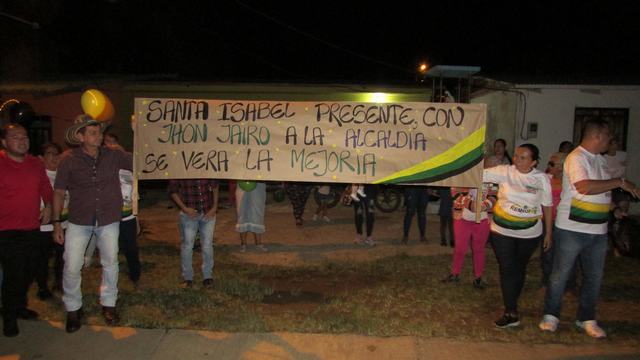 SANTA ISABEL PRESENTE, CON
JHON JAIRO A LA ALCALDIA
SE VERA LA MEJORIA